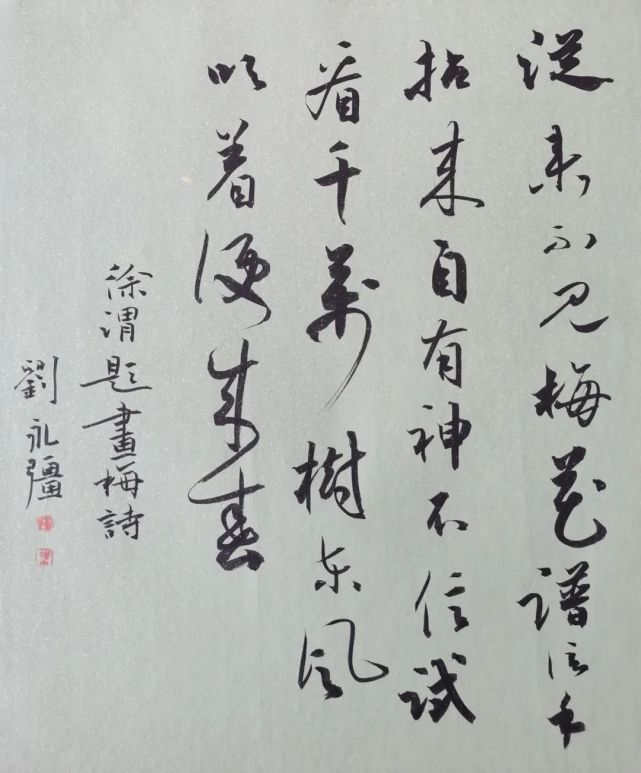 從來不見梅花譜信手
拈來自有神不信試
看千萬樹東風
吹着便成春
徐渭題畫梅詩
劉永彊